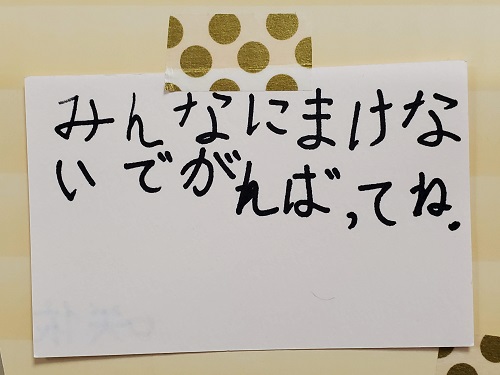 みんなにまけな
いでがんばってね.